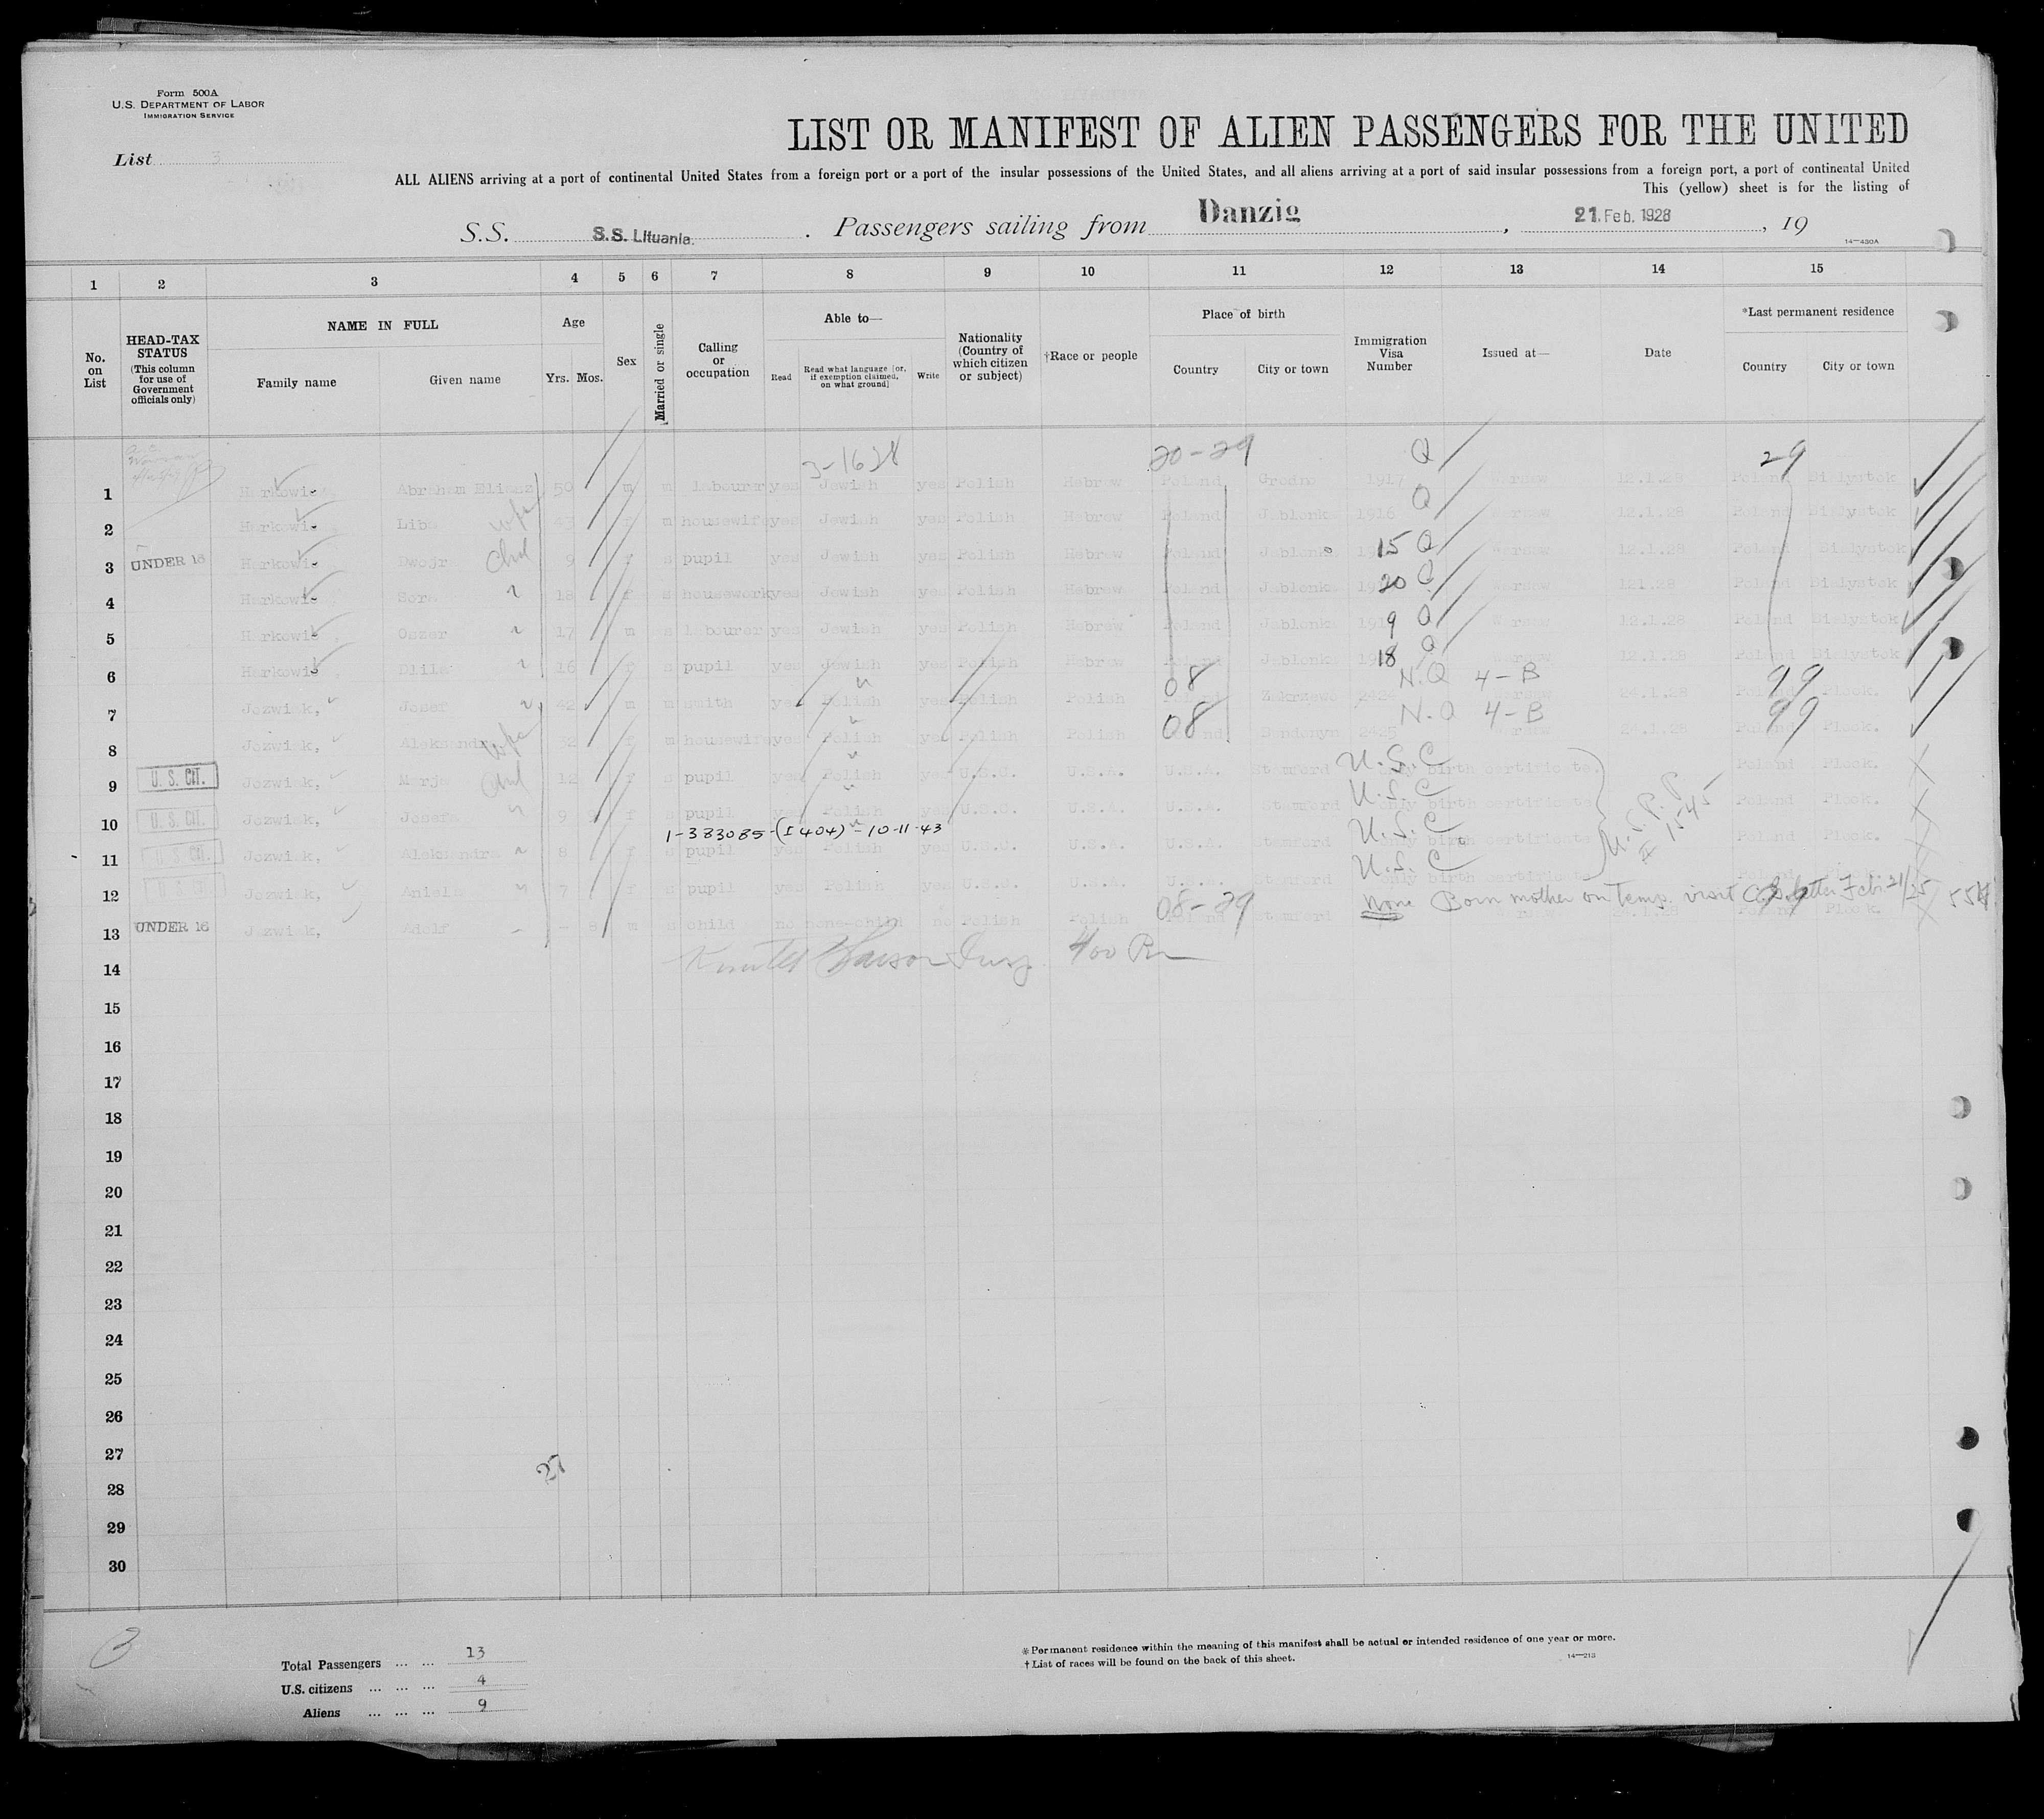 Form 500A
U.S. DEPARTMENT OF LABOR
IMMIGRATION SERVICE
List 3
LIST OR MANIFEST OF ALIEN PASSENGERS FOR THE UNITED
ALL ALIENS arriving at a port of continental United States from a foreign port or a port of the insular possessions of the United States, and all aliens arriving at a port of said insular possessions from a foreign port, a port of continental United
This (yellow) sheet is for the listing of
S.S. S.S. Lituania. Passengers sailing from Danzig, 21. Feb. 1928, 19
14—430A
1 2 3 4 5 6 7 8 9 10 11 12 13 14 15
No. on List
HEAD-TAX STATUS (This column for use of Government officials only)
NAME IN FULL
Family name Given name
Age
Yrs. Mos.
Sex
Married or single
Calling or occupation
Able to—
Read Read what language [or, if exemption claimed, on what ground] Write
Nationality (Country of which citizen or subject)
†Race or people
Place of birth
Country City or town
Immigration Visa Number
Issued at—
Date
*Last permanent residence
Country City or town
3-1628 20-29 Q 29
1 Harkowic Abraham 50 m m labourer yes Jewish yes Polish Hebrew Poland Grodno 1917 Warsaw 12.1.28 Poland Bialystok
Q
2 Harkowic Liba wife 43 f m housewife yes Jewish yes Polish Hebrew Poland Jablonka 1916 Warsaw 12.1.28 Poland Bialystok
3 UNDER 16 Harkowic Dwojra Chd 9 f s pupil yes Jewish yes Polish Hebrew Poland Jablonka 15 Q Warsaw 12.1.28 Poland Bialystok
4 Harkowic Sora 18 f s housework yes Jewish yes Polish Hebrew Poland Jablonka 20 Q Warsaw 121.28 Poland Bialystok
5 Harkowic Oszer 17 m s labourer yes Jewish yes Polish Hebrew Poland Jablonka 9 Q Warsaw 12.1.28 Poland Bialystok
6 Harkowic 16 f s pupil yes Jewish yes Polish Hebrew Poland Jablonka 18 Q Warsaw 12.1.28 Poland Bialystok
08 N.Q 4-B 99
7 Jozwiak, Josef 42 m m smith yes Polish yes Polish Polish Poland Zakrzewo 2424 Warsaw 24.1.28 Poland Plock.
08 N.Q 4-B 99
8 Jozwiak, Aleksandra wife 32 f m housewife yes Polish yes Polish Polish Poland 2425 Warsaw 24.1.28 Poland Plock.
U.S.C
9 U. S. CIT. Jozwiak, Marja Chd 12 f s pupil yes Polish yes U.S.C. U.S.A. U.S.A. Stamford only birth certificate. Poland Plock.
U.S.C
10 U. S. CIT. Jozwiak, Josefa 9 f s pupil yes Polish yes U.S.C. U.S.A. U.S.A. Stamford only birth certificate Poland Plock.
1-383085-(I 404) - 10-11-43 U.S.C
11 U. S. CIT. Jozwiak, Aleksandra 8 f s pupil yes Polish yes U.S.C. U.S.A. U.S.A. Stamford only birth certificate Poland Plock.
U.S.C
12 U. S. CIT. Jozwiak, Aniela 7 f s pupil yes Polish yes U.S.C. U.S.A. U.S.A. Stamford only birth certificate
08-29 None Born mother on Temp. visit letter Feb 21/25 55
13 UNDER 16 Jozwiak, Adolf - - 8 m s child no none-child no Polish Polish Poland Stamford Warsaw 24.1.28 Poland Plock.
14
15
16
17
18
19
20
21
22
23
24
25
26
27
28
29
30
3
Total Passengers ... ... 13
U.S. citizens ... ... ... 4
Aliens ... ... ... 9
*Permanent residence within the meaning of this manifest shall be actual or intended residence of one year or more.
†List of races will be found on the back of this sheet.
14—213